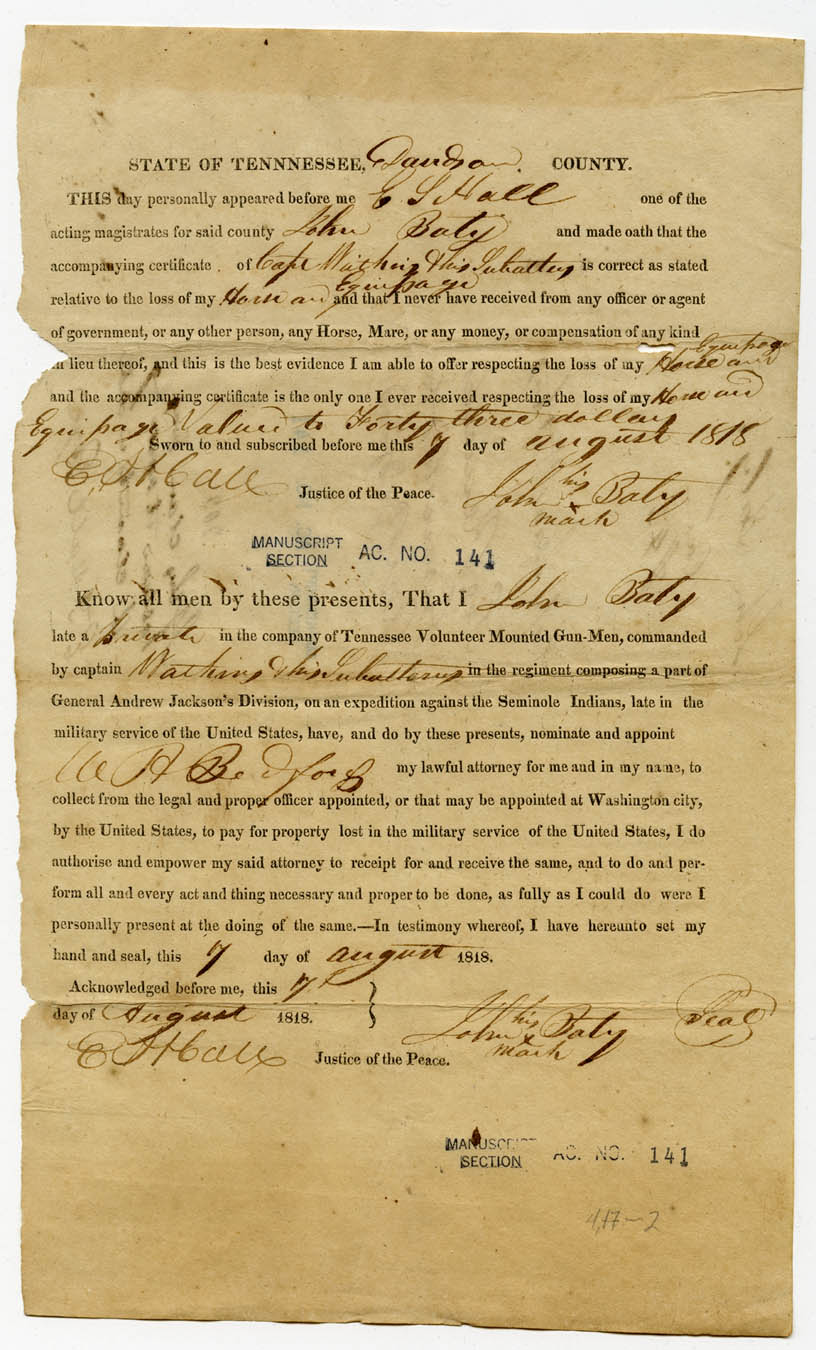 STATE OF TENNNESSEE, Davidson COUNTY.
THIS day personally appeared before me E S Hall one of the
acting magistrates for said county John Baty and made oath that the
accompanying certificate . of Capt Watkins & his Subalterns is correct as stated
Equipage
relative to the loss of my Horse and and that I never have received from any officer or agent
of government, or any other person, any Horse, Mare, or any money, or compensation of any kind
Equipage
in lieu thereof, and this is the best evidence I am able to offer respecting the loss of my Horse and
and the accompanying certificate is the only one I ever received respecting the loss of my Horse and
Equipage Valued to Forty three dollars
Sworn to and subscribed before me this 7 day of august 1818
E. S Hall Justice of the Peace. John his x Baty
mark
MANUSCRIPT SECTION AC. NO. 141
Know all men by these presents, That I John Baty
late a Private in the company of Tennessee Volunteer Mounted Gun-Men, commanded
by captain Watkins & his Subalterns in the regiment composing a part of
General Andrew Jackson's Division, on an expedition against the Seminole Indians, late in the
military service of the United States, have, and do by these presents, nominate and appoint
W H Bedford my lawful attorney for me and in my name, to
collect from the legal and proper officer appointed, or that may be appointed at Washington city,
by the United States, to pay for property lost in the military service of the United States, I do
authorise and empower my said attorney to receipt for and receive the same, and to do and per-
form all and every act and thing necessary and proper to be done, as fully as I could do were I
personally present at the doing of the same.—In testimony whereof, I have hereunto set my
hand and seal, this 7 day of august 1818.
Acknowledged before me, this 7th
day of August 1818.
John his x Baty Seal
mark
E S Hall Justice of the Peace.
MANUSCRIPT SECTION AC. NO. 141
4,17-2